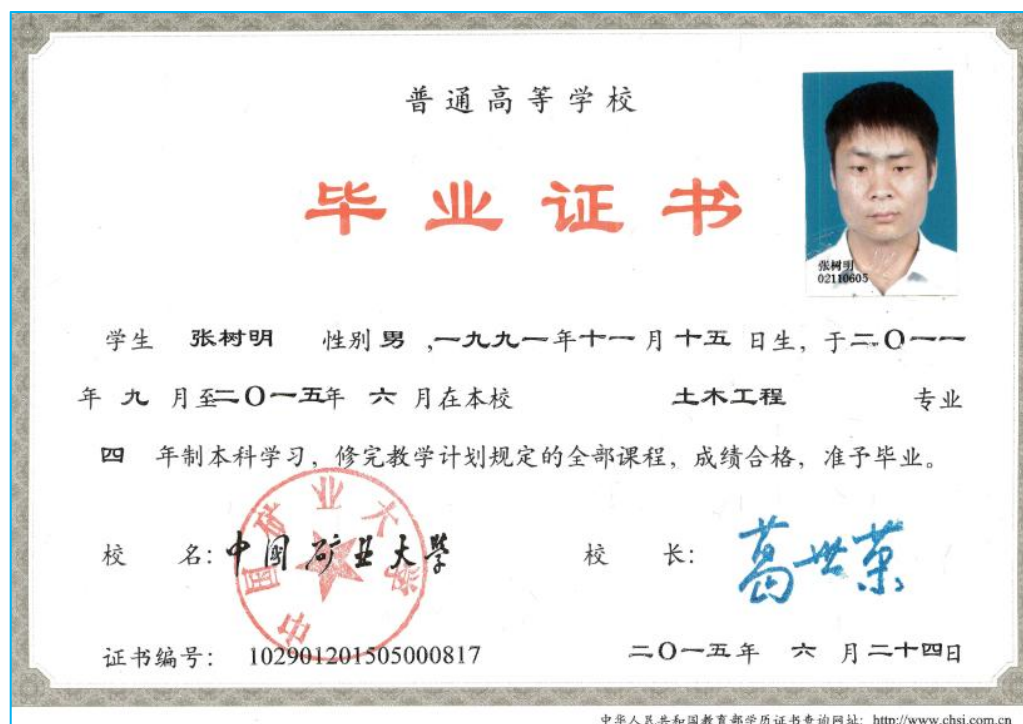 普通高等学校
毕业证书
张树明
02110605
学生 张树明 性别 男 ,一九九一年十一月十五日生，于二〇一一
年 九 月至二〇一五年 六 月在本校 土木工程 专业
四 年制本科学习，修完教学计划规定的全部课程，成绩合格，准予毕业。
中国矿业大学
校 名：中国矿业大学 校 长：葛世荣
证书编号： 102901201505000817 二〇一五年 六 月二十四日
中华人民共和国教育部学历证书查询网址：http://www.chsi.com.cn